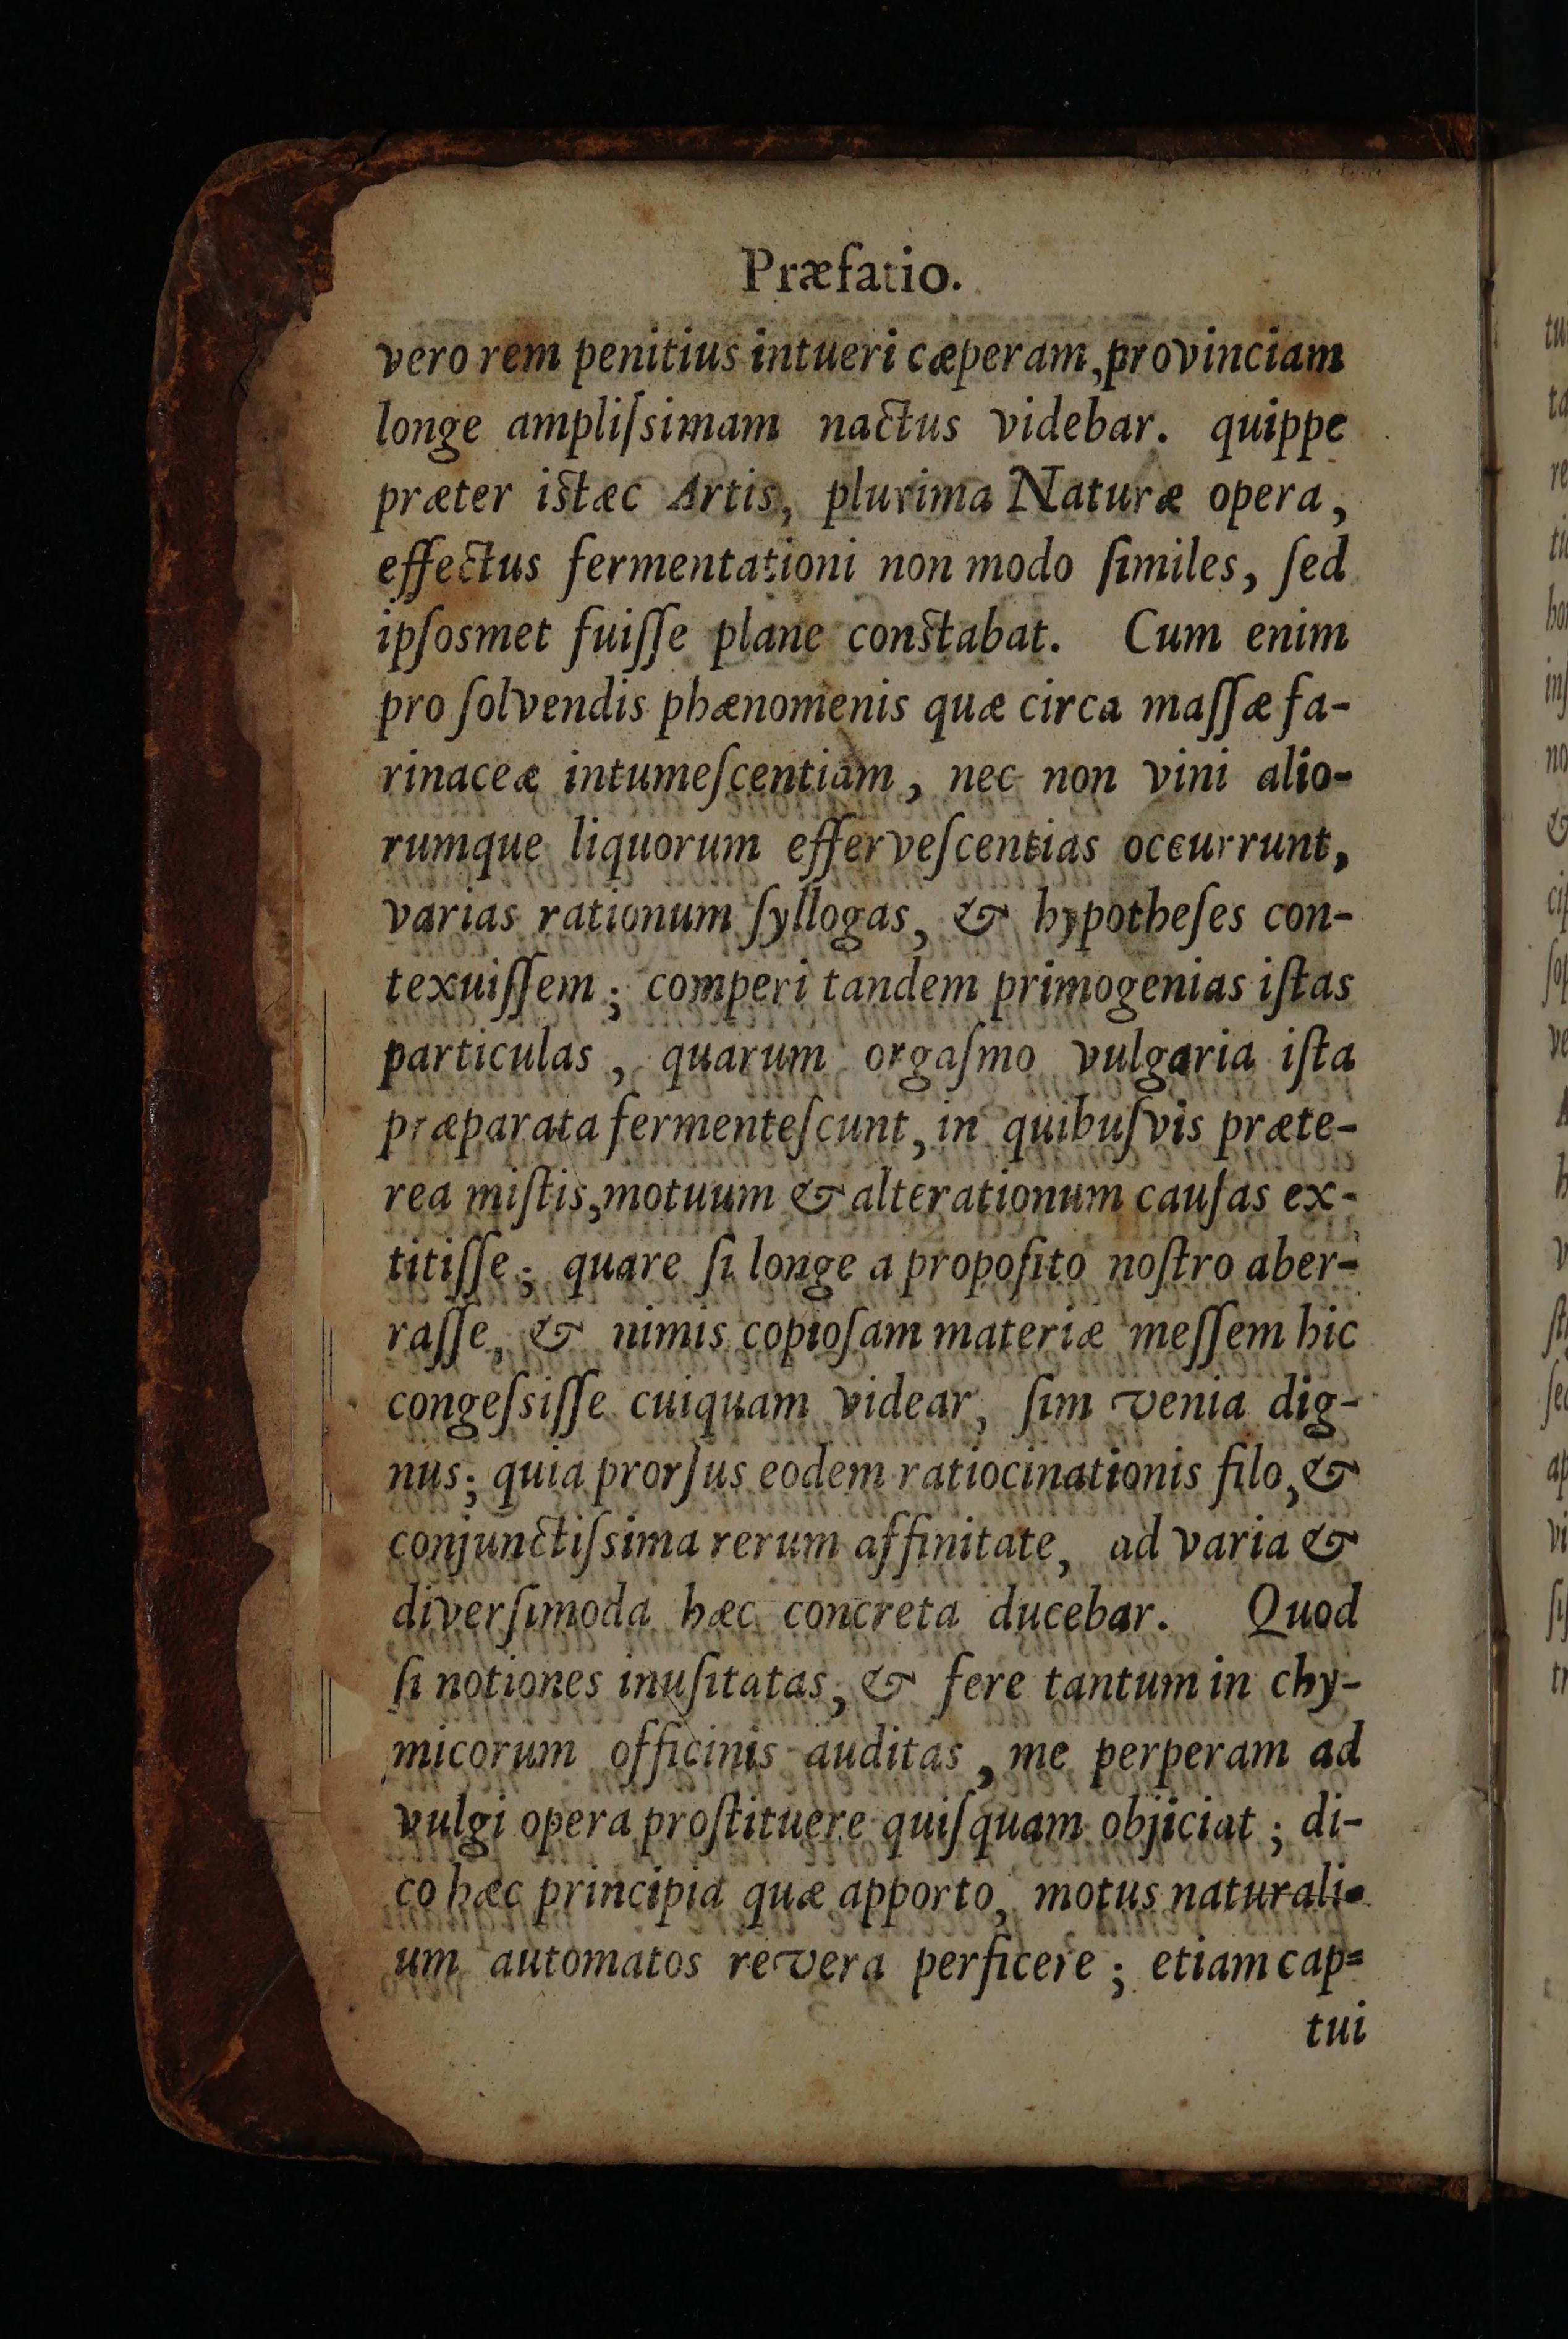 Præfatio.
vero rem penitius intueri cæperam, provinciam
longe ampliſsimam nactus videbar. quippe
præter istæc Artis, plurima Naturæ opera,
effectus fermentationi non modo ſimiles, ſed
ipſosmet fuiſſe plane constabat. Cum enim
pro ſolvendis phænomenis quæ circa maſſæ fa-
rinaceæ intumeſcentiam, nec non vini alio-
rumque liquorum efferveſcentias occurrunt,
varias rationum ſyllogas, & hypotheſes con-
texuiſſem; comperi tandem primogenias iſtas
particulas, quarum orgaſmo vulgaria iſta
præparata fermenteſcunt, in quibuſvis præte-
rea miſtis, motuum & alterationum cauſas ex-
titiſſe; quare ſi longe a propoſito noſtro aber-
raſſe, & nimis copioſam materiæ meſſem hic
congeſsiſſe cuiquam videar, ſim venia dig-
nus; quia prorſus eodem ratiocinationis filo, &
conjunctiſsima rerum affinitate, ad varia &
diverſimoda hæc concreta ducebar. Quod
ſi notiones inuſitatas, & fere tantum in chy-
micorum officinis auditas, me perperam ad
vulgi opera proſtituere quiſquam objiciat; di-
co hæc principia quæ apporto, motus naturali-
um automatos revera perficere; etiam cap-
tui